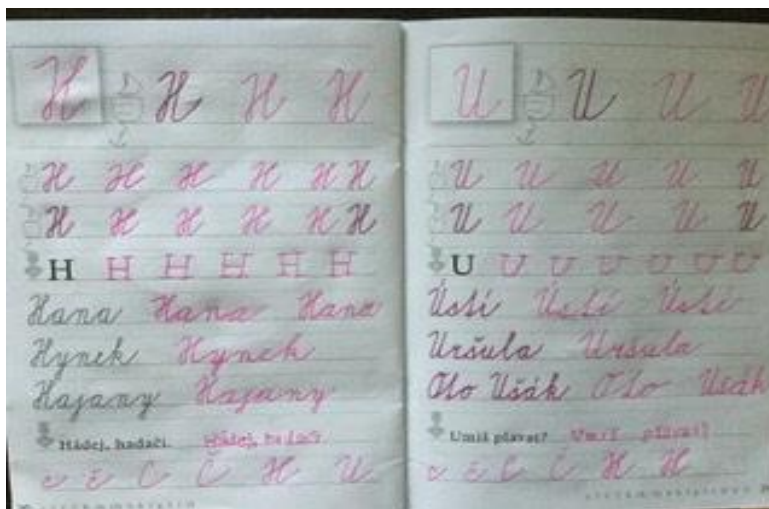 H H H H
H H H H H H
H H H H H H
H H H H H H
Hana Hana Hana
Hynek Hynek
Hajany Hajany
Hádej, hadači. Hádej, hadači.
c č C Č H U
U U U U
U U U U U
U U U U U
U U U U U U U
Ústí Ústí Ústí
Uršula Uršula
Oto Ušák Oto Ušák
Umíš plavat? Umíš plavat?
c č C Č H H